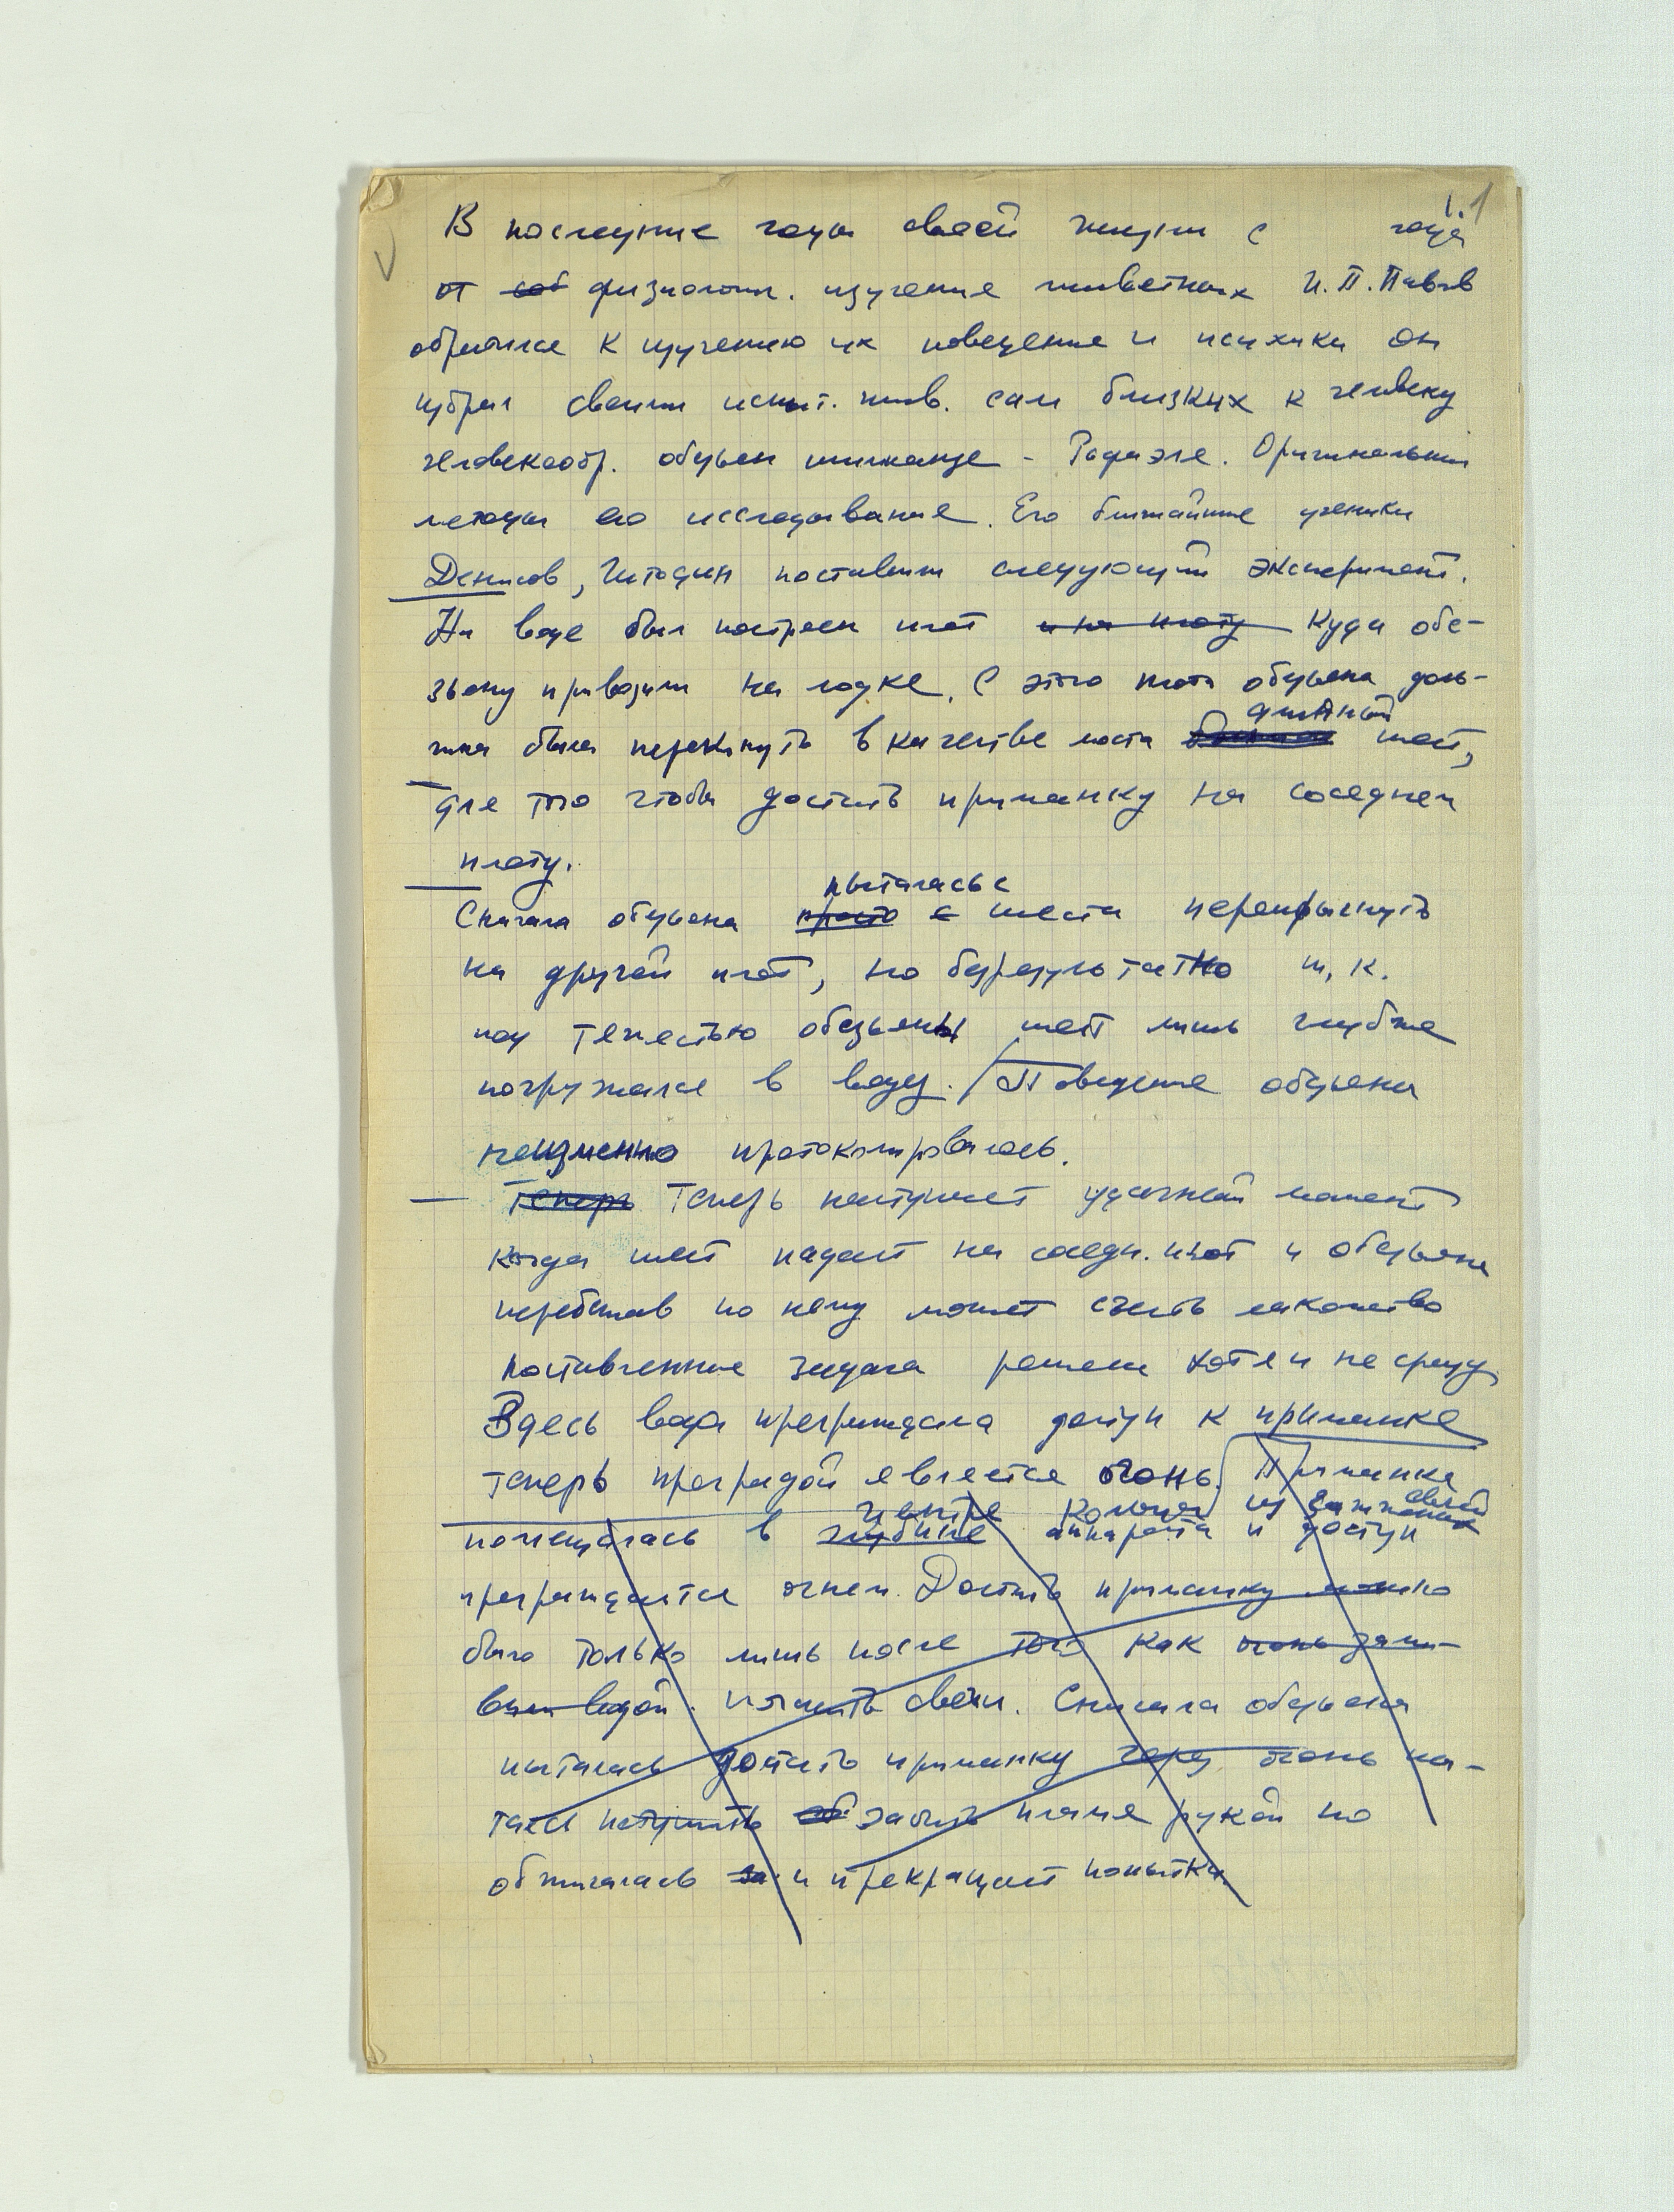 1. 1
В последние годы своей жизни с года
от соб физиологич. изучения животных И. П. Павлов
обратился к изучению их поведения и психики Он
избрал своими испыт. жив. сам близких к человеку
человекообр. обезьян шимпанзе - Рафаэля. Оригинальны
методы его исследования. Его ближайшие ученики
Денисов, Штодин поставили следующий эксперимент.
На воде был построен плот и на плоту куда обе-
зьяну привозили на лодке. С этого плота обезьяна долж-
на была перекинуть в качестве моста длинный шест,
для того чтобы достать приманку на соседнем
плоту.
пыталась с
Сначала обезьяна просто с шеста перепрыгнуть
на другой плот, но безрезультатно т. к.
под тяжестью обезьяны шест лишь глубже
погружался в воду. Поведение обезьяны
неизменно протоколировалось.
Теперь Теперь наступает удачный момент
когда шест падает на соседн. плот и обезьяна
перебежав по нему может съесть лакомство
поставленная задача решена хотя и не сразу
Здесь вода преграждала доступ к приманке
теперь преградой является огонь. Приманка
центре кольца из зажженных свечей
помещалась в глубине аппарата и доступ
преграждается огнем. Достать приманку можно
было только лишь после того как огонь зали-
вали водой. погасить свечи. Сначала обезьяна
пыталась достать приманку через огонь пы-
тается потушить забить пламя рукой но
обжигалась за и прекращает попытки